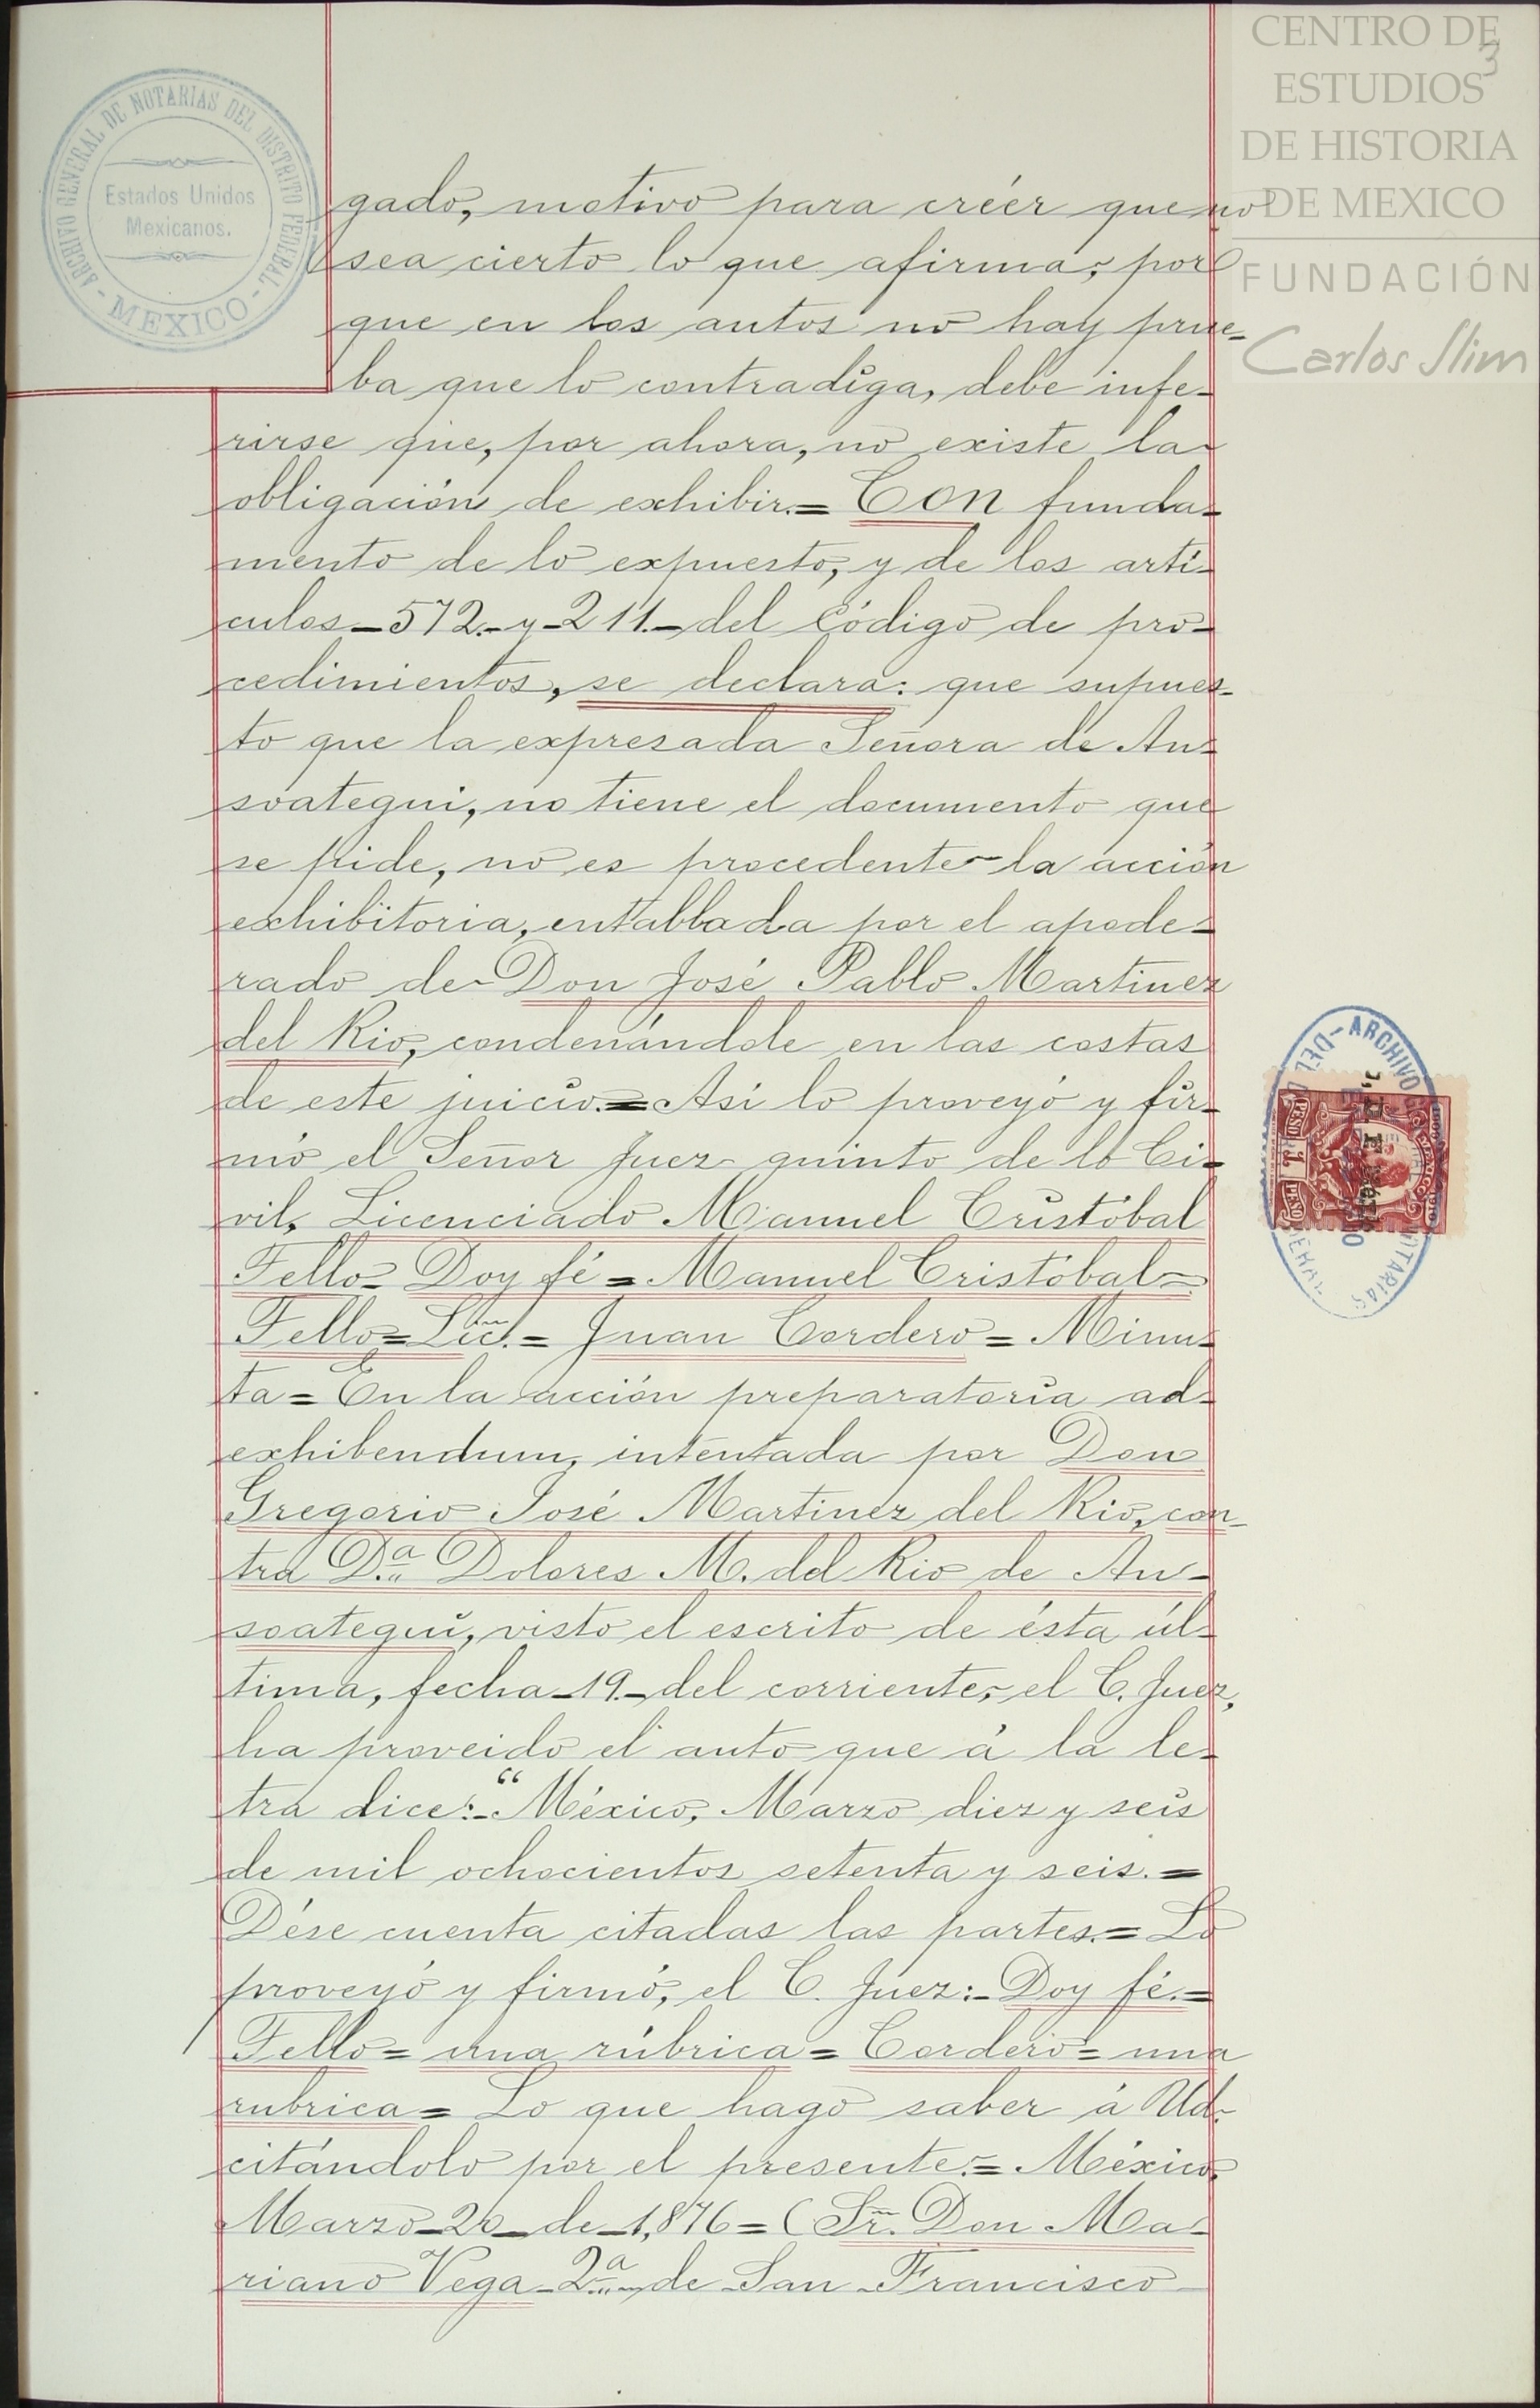 CENTRO DE
ESTUDIOS
DE HISTORIA
DE MEXICO
FUNDACIÓN
Carlos Slim
3
ARCHIVO GENERAL DE NOTARIAS DEL DISTRITO FEDERAL
- MEXICO -
Estados Unidos
Mexicanos.
gado, motivo para créer que no
sea cierto lo que afirma; por
que en los autos no hay prue-
ba que lo contradiga, debe infe-
rirse que, por ahora, no existe la
obligación de exhibir.= Con funda-
mento de lo expuesto, y de los artí-
culos-572.-y-211.-del Código de pro-
cedimientos, se declara: que supues-
to que la expresada Señora de An-
soategui, no tiene el documento que
se pide, no es procedente la acción
exhibitoria, entablada por el apode-
rado de Don José Pablo Martinez
del Rio, condenándole en las costas
de este juicio.= Así lo proveyó y fir-
mó el Señor Juez quinto de lo Ci-
vil, Licenciado Manuel Cristóbal
Tello- Doy fé = Manuel Cristóbal=
Tello= Lic.= Juan Cordero = Minu-
ta = En la acción preparatoria ad-
exhibendum, intentada por Don
Gregorio José Martinez del Rio, con-
tra D.ª Dolores M. del Rio de An-
soategui, visto el escrito de ésta úl-
tima, fecha-19.-del corriente, el C. Juez,
ha proveido el auto que á la le-
tra dice:-"México, Marzo diez y seis
de mil ochocientos setenta y seis.=
Dése cuenta citadas las partes.= Lo
proveyó y firmó, el C. Juez:- Doy fé.=
Tello= una rúbrica = Cordero = una
rubrica = Lo que hago saber á Ud.
citándolo por el presente.= México,
Marzo-20-de-1,876 = (Sr. Don Ma-
riano Vega-2.ª-de San Francisco
ARCHIVO
NOTARIAS
PESO 1 PESO